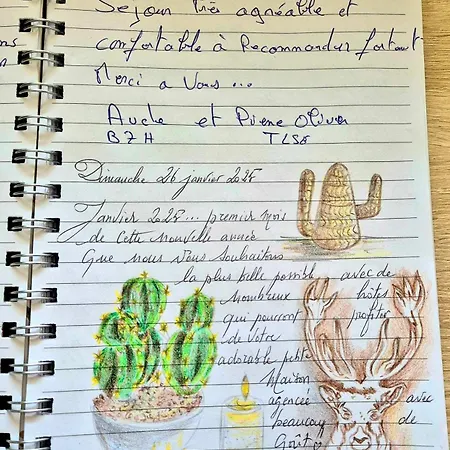 Séjour très agréable et
confortable à Recommander fortement
Merci a Vous ...
Aude et Pierre Olivier
BZH TLSE
Dimanche 26 janvier 2025
Janvier 2025 ... premier mois
de cette nouvelle année
Que nous Vous Souhaitons
la plus belle possible avec de
nombreux hôtes
qui pourront profiter
de votre
adorable petite
Maison
agencée avec
beaucoup de
Goût